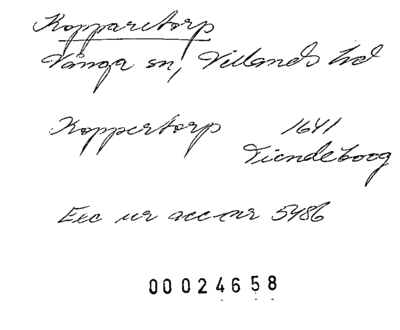 Kopparetorp
Vånga sn, Villands hd
Koppertorp 1641
Tiendeboog
Exc ur acc-nr 5486
00024658